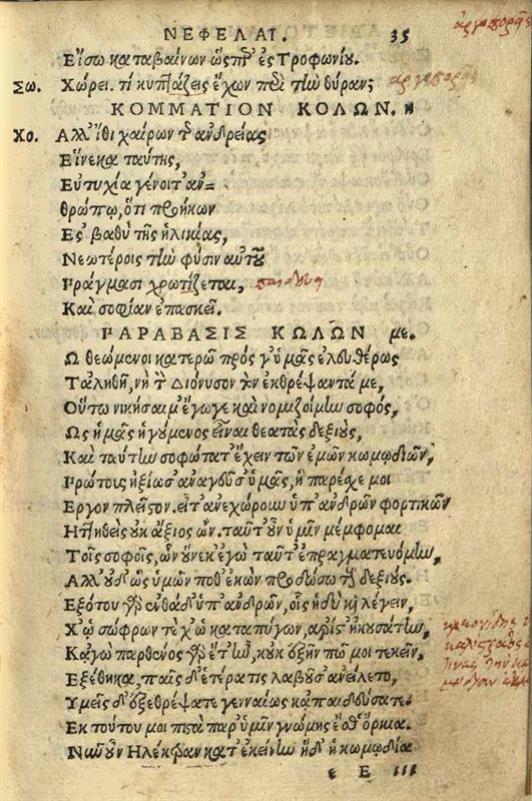 ΝΕΦΕΛΑΙ. 35
Εἴσω καταβαίνων ὥσπερ ἐς Τροφωνίου.
Σω. Χώρει. τί κυπτάζεις ἔχων περὶ τὴν θύραν;
ΚΟΜΜΑΤΙΟΝ ΚΩΛΩΝ. η
Χο. Αλλ' ἴθι χαίρων τῆς ἀνδρείας
Εἵνεκα ταύτης,
Εὐτυχία γένοιτ' ἀν=
θρώπῳ, ὅτι προήκων
Ες βαθὺ τῆς ἡλικίας,
Νεωτέροις τὴν φύσιν αὐτοῦ
Πράγμασι χρωτίζεται,
Καὶ σοφίαν ἐπασκεῖ.
ΠΑΡΑΒΑΣΙΣ ΚΩΛΩΝ με.
Ω θεώμενοι κατερῶ πρός γ' ὑμᾶς ἐλευθέρως
Τἀληθῆ, νὴ τὸν Διόνυσον τὸν ἐκθρέψαντά με,
Οὕτω νικήσαιμ' ἔγωγε καὶ νομιζοίμην σοφός,
Ως ὑμᾶς ἡγούμενος εἶναι θεατὰς δεξιούς,
Καὶ ταύτην σοφώτατ' ἔχειν τῶν ἐμῶν κωμῳδιῶν,
Πρώτους ἠξίωσ' ἀναγεῦσ' ὑμᾶς, ἣ παρέσχε μοι
Εργον πλεῖστον. εἶτ' ἀνεχώρουν ὑπ' ἀνδρῶν φορτικῶν
Ηττηθεὶς οὐκ ἄξιος ὤν. ταῦτ' οὖν ὑμῖν μέμφομαι
Τοῖς σοφοῖς, ὧν οὕνεκ' ἐγὼ ταῦτ' ἐπραγματευόμην,
Αλλ' οὐδ' ὣς ὑμῶν ποθ' ἑκὼν προδώσω τοὺς δεξιούς.
Εξότου γὰρ ἐνθάδ' ὑπ' ἀνδρῶν, οἷς ἡδὺ καὶ λέγειν,
Χὠ σώφρων τε χὠ καταπύγων, ἄριστ' ἠκουσάτην,
Κἀγὼ παρθένος γὰρ ἔτ' ἦν, κοὐκ ἐξῆν πώ μοι τεκεῖν,
Εξέθηκα, παῖς δ' ἑτέρα τις λαβοῦσ' ἀνείλετο,
Υμεῖς δ' ἐξεθρέψατε γενναίως κἀπαιδεύσατε.
Εκ τούτου μοι πιστὰ παρ' ὑμῖν γνώμης ἔσθ' ὅρκια.
Νῦν οὖν Ηλέκτραν κατ' ἐκείνην ἥδ' ἡ κωμῳδία
ε Ε iii